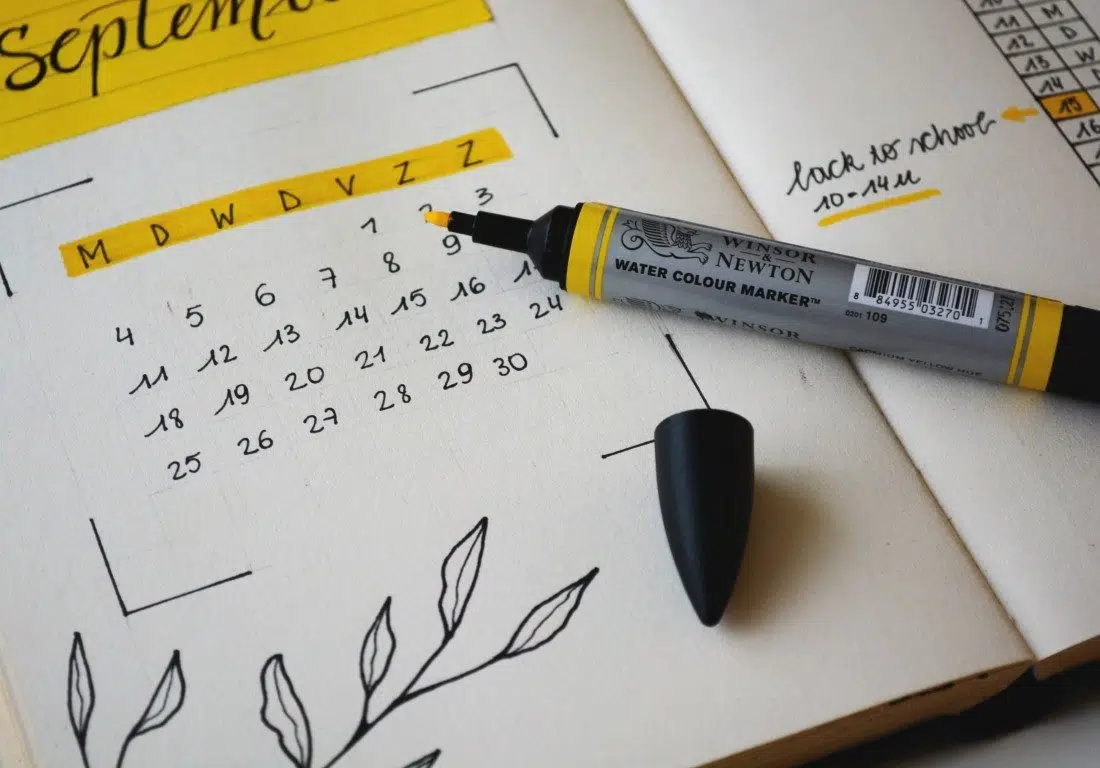 Septem
M D W D V Z Z
1 2 3
4 5 6 7 8 9
11 12 13 14 15 16
18 19 20 21 22 23 24
25 26 27 28 29 30
WINSOR
&
NEWTON
WATER COLOUR MARKER™
8 84955 03270 1
0201 109
WINSOR
CADMIUM YELLOW HUE
back to school
10-14u
10
11 M
12 D
13 W
14
15
16